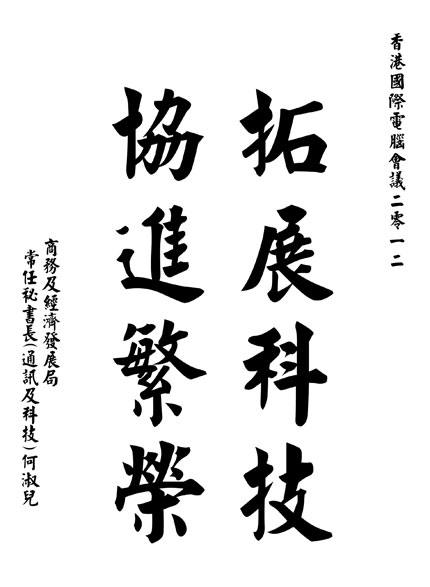 香港國際電腦會議二零一二
拓展科技
協進繁榮
商務及經濟發展局
常任秘書長(通訊及科技)何淑兒